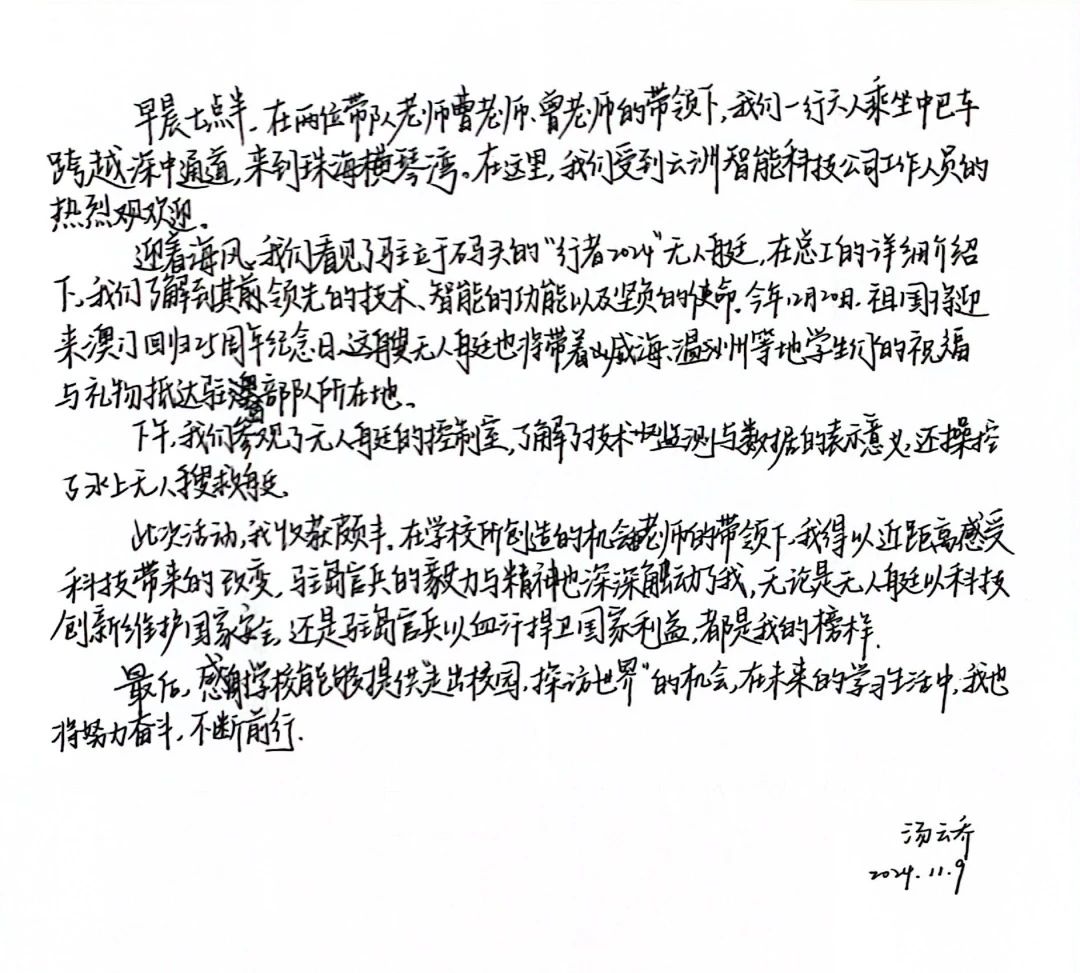 早晨七点半，在两位带队老师曹老师、曾老师的带领下，我们一行六人乘坐中巴车
跨越深中通道，来到珠海横琴湾。在这里，我们受到云洲智能科技公司工作人员的
热烈欢迎。
迎着海风，我们看见了驻立于码头的“行者2024”无人艇，在总工的详细介绍
下，我们了解到其领先的技术、智能的功能以及坚负的使命。今年12月20日，祖国将迎
来澳门回归25周年纪念日，这艘无人艇也将带着威海、温州等地学生们的祝福
与礼物抵达驻澳部队所在地。
下午，我们参观了无人艇的控制室，了解了技术监测与数据的表示意义，还操控
了水上无人搜救艇。
此次活动，我收获颇丰。在学校所创造的机会老师的带领下，我得以近距离感受
科技带来的改变，驻岛官兵的毅力与精神也深深触动了我，无论是无人艇以科技
创新维护国家安全，还是驻岛官兵以血汗捍卫国家利益，都是我的榜样。
最后，感谢学校能够提供“走出校园，探访世界”的机会，在未来的学习生活中，我也
将努力奋斗，不断前行.
汤云乔
2024.11.9